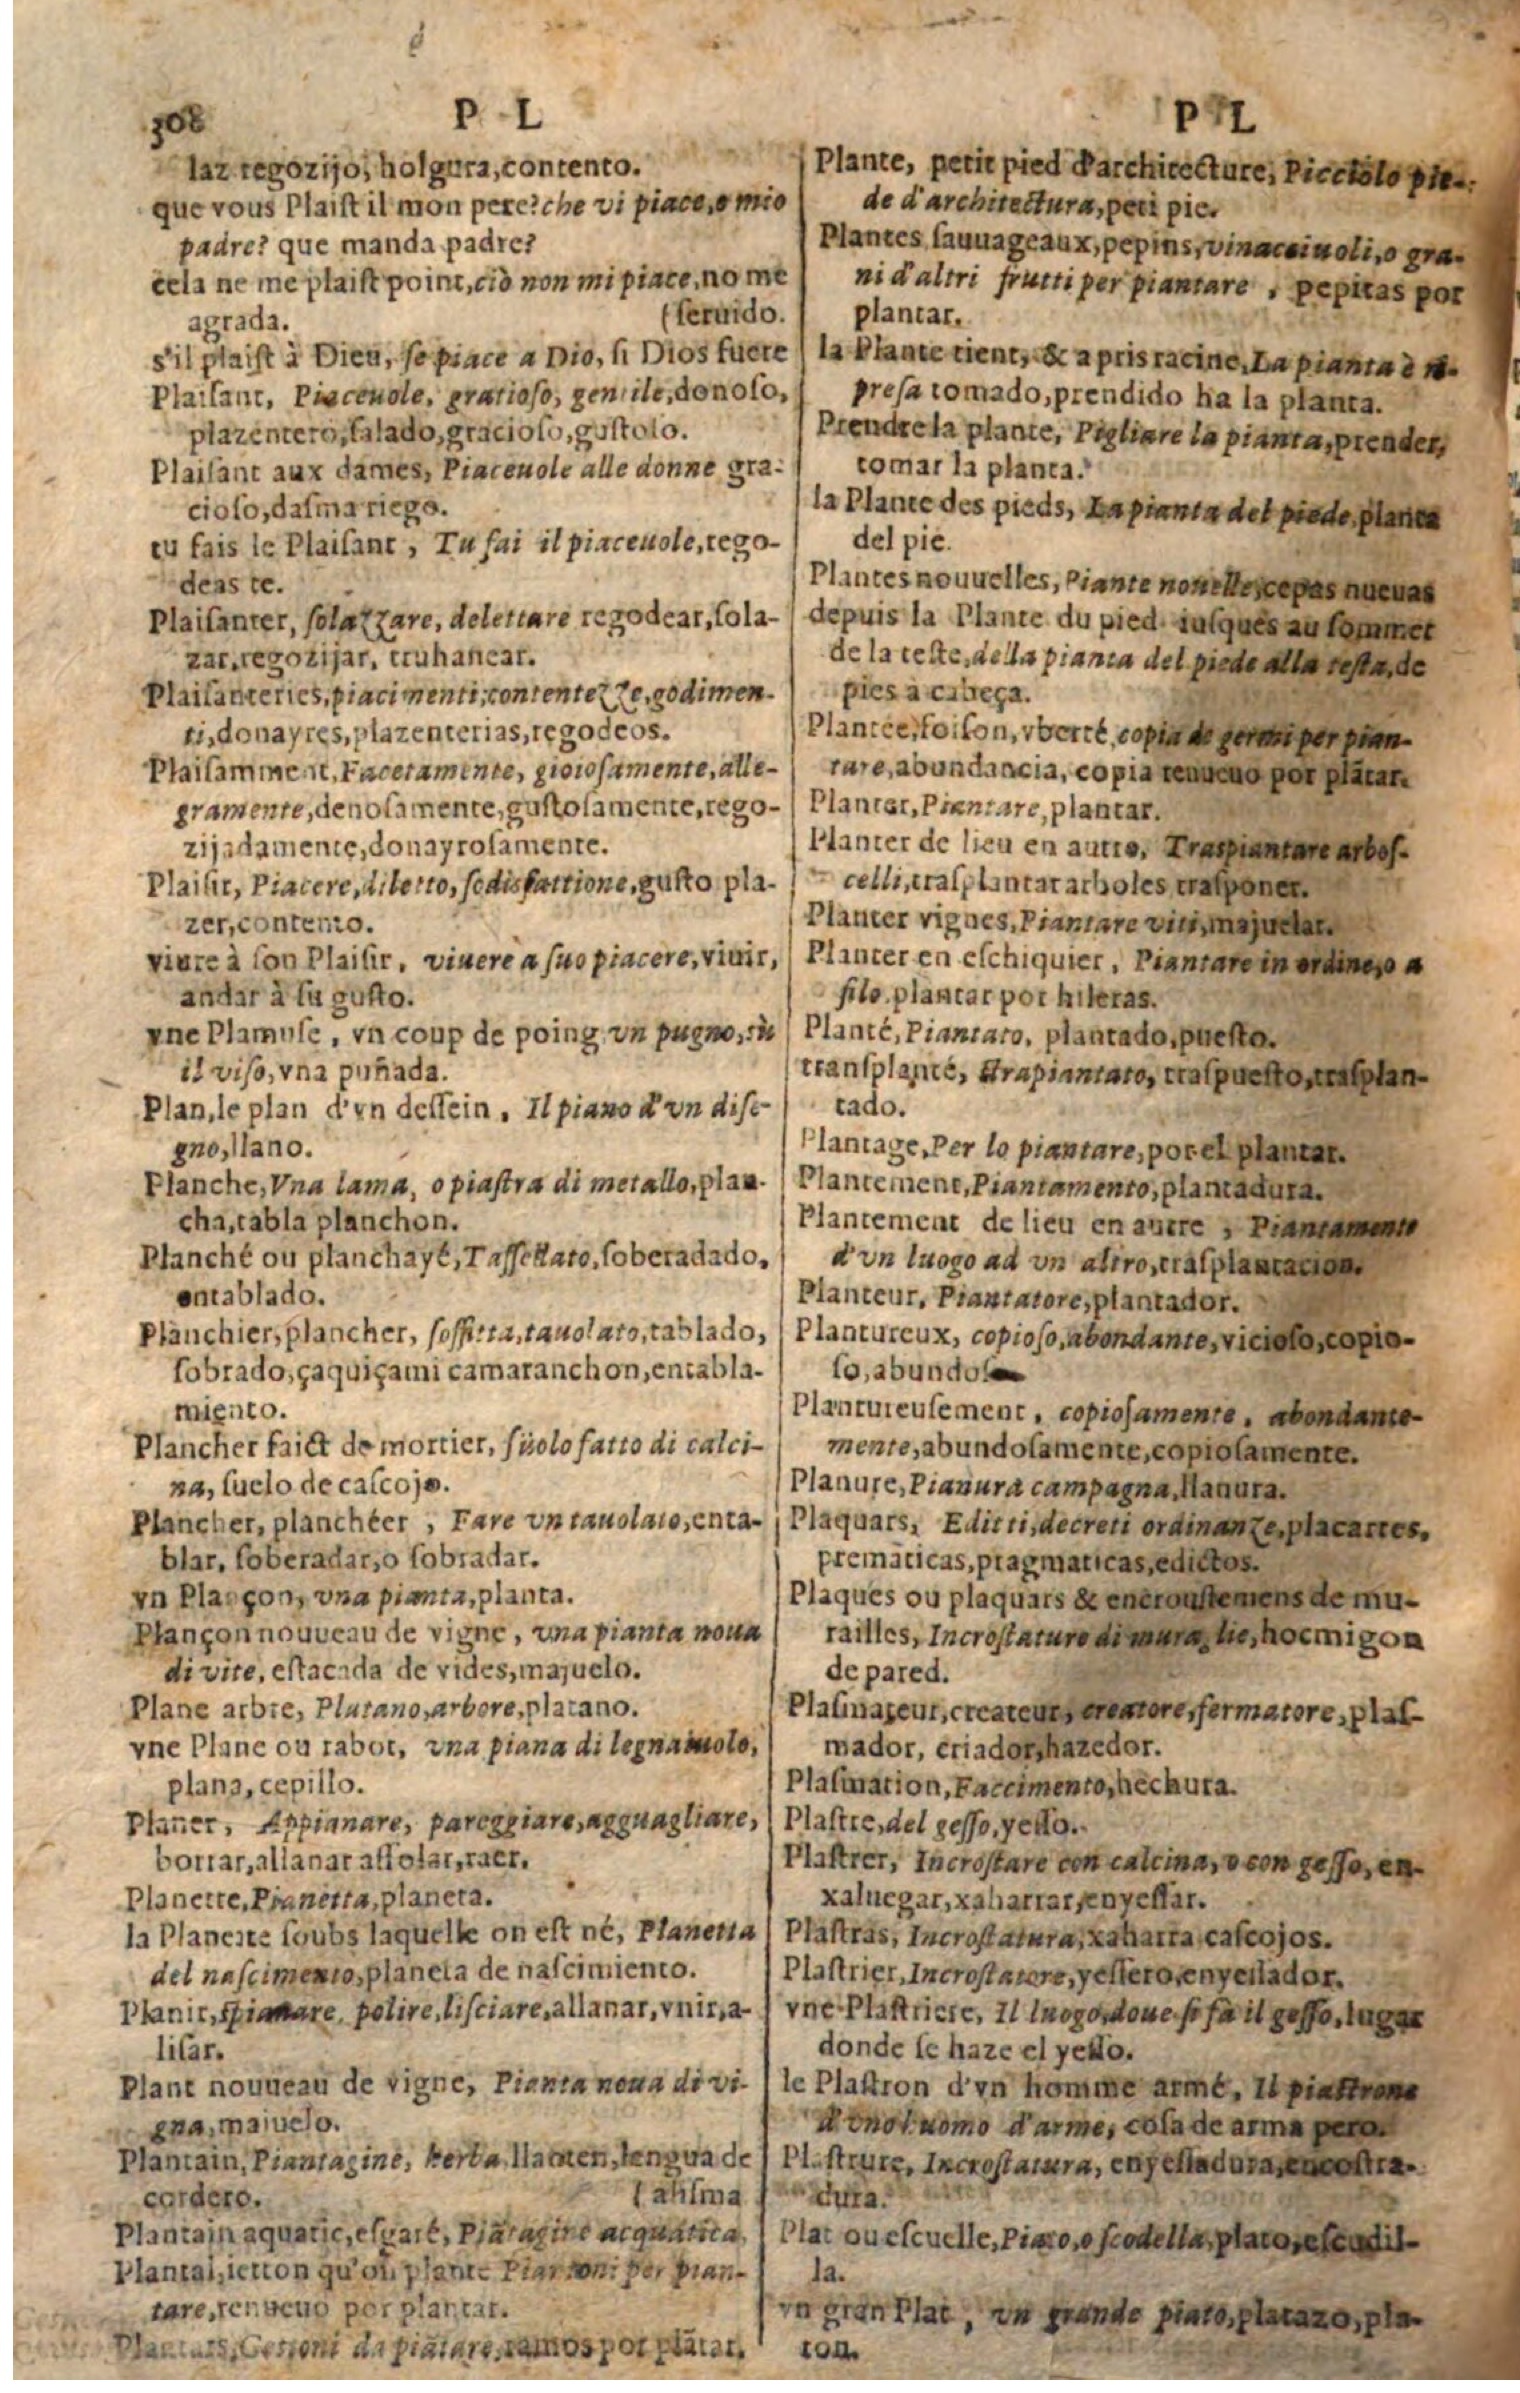 308
P L
laz regozijo, holgura, contento.
que vous Plaiſt il mon pere? che vi piace, o mio
padre? que manda padre?
cela ne me plaiſt point, ciò non mi piace, no me
agrada. (ſeruido.
s'il plaiſt à Dieu, ſe piace a Dio, ſi Dios fuere
Plaiſant, Piaceuole, gratioſo, gentile, donoſo,
plazentero, ſalado, gracioſo, guſtoſo.
Plaiſant aux dames, Piaceuole alle donne gra-
cioſo, daſma riego.
tu fais le Plaiſant, Tu fai il piaceuole, rego-
deas te.
Plaiſanter, ſolazzare, delettare regodear, ſola-
zar, regozijar, truhanear.
Plaiſanteries, piacimenti, contentezze, godimen-
ti, donayres, plazenterias, regodeos.
Plaiſamment, Facetamente, gioioſamente, alle-
gramente, denoſamente, guſtoſamente, rego-
zijadamente, donayroſamente.
Plaiſir, Piacere, diletto, ſodisfattione, guſto pla-
zer, contento.
viure à ſon Plaiſir, viuere a ſuo piacere, viuir,
andar à ſu guſto.
vne Plamuſe, vn coup de poing vn pugno, sù
il viſo, vna puñada.
Plan, le plan d'vn deſſein, Il piano d'vn diſe-
gno, llano.
Planche, Vna lama, o piaſtra di metallo, plan-
cha, tabla planchon.
Planché ou planchayé, Taſſellato, ſoberadado,
entablado.
Planchier, plancher, ſoffitta, tauolato, tablado,
ſobrado, çaquiçami camaranchon, entabla-
miento.
Plancher faict de mortier, ſüolo fatto di calci-
na, ſuelo de caſcojo.
Plancher, planchéer, Fare vn tauolato, enta-
blar, ſoberadar, o ſobradar.
vn Plançon, vna pianta, planta.
Plançon nouueau de vigne, vna pianta noua
di vite, eſtacada de vides, majuelo.
Plane arbre, Platano, arbore, platano.
vne Plane ou rabot, vna piana di legnaiuolo,
plana, cepillo.
Planer, Appianare, pareggiare, agguagliare,
borrar, allanar aſſolar, raer.
Planette, Pianetta, planeta.
la Planette ſoubs laquelle on eſt né, Planetta
del naſcimento, planeta de naſcimiento.
Planir, ſpianare, polire, liſciare, allanar, vnir, a-
liſar.
Plant nouueau de vigne, Pianta noua di vi-
gna, maiuelo.
Plantain, Piantagine, herba, llanten, lengua de
cordero. (aliſma
Plantain aquatic, eſgaré, Piãtagine acquatica,
Plantal, ietton qu'on plante Piantoni per pian-
tare, renueuo por plantar.
Plantars, Gettoni da piãtare, ramos por plãtar.
P L
Plante, petit pied d'architecture, Picciolo pie-
de d'architettura, peti pie.
Plantes ſauuageaux, pepins, vinacciuoli, o gra-
ni d'altri frutti per piantare, pepitas por
plantar.
la Plante tient, & a pris racine, La pianta è ri-
preſa tomado, prendido ha la planta.
Prendre la plante, Pigliare la pianta, prender,
tomar la planta.
la Plante des pieds, La pianta del piede, planta
del pie.
Plantes nouuelles, Piante nouelle, cepas nueuas
depuis la Plante du pied iuſques au ſommet
de la teſte, della pianta del piede alla teſta, de
pies a cabeça.
Plantée, foiſon, vberté, copia de germi per pian-
tare, abundancia, copia renueuo por plãtar.
Planter, Piantare, plantar.
Planter de lieu en autre, Traſpiantare arboſ-
celli, traſplantar arboles traſponer.
Planter vignes, Piantare viti, majuelar.
Planter en eſchiquier, Piantare in ordine, o a
filo, plantar por hileras.
Planté, Piantato, plantado, pueſto.
tranſplanté, ſtrapiantato, traſpueſto, traſplan-
tado.
Plantage, Per lo piantare, por el plantar.
Plantement, Piantamento, plantadura.
Plantement de lieu en autre, Piantamento
d'vn luogo ad vn altro, traſplantacion.
Planteur, Piantatore, plantador.
Plantureux, copioſo, abondante, vicioſo, copio-
ſo, abundoſo
Plantureuſement, copioſamente, abondante-
mente, abundoſamente, copioſamente.
Planure, Pianura campagna, llanura.
Plaquars, Editti, decreti ordinanze, placartes,
prematicas, pragmaticas, edictos.
Plaques ou plaquars & encrouſtemens de mu-
railles, Incroſtature di muraglie, hormigon
de pared.
Plaſmateur, createur, creatore, fermatore, plaſ-
mador, criador, hazedor.
Plaſmation, Faccimento, hechura.
Plaſtre, del geſſo, yeſſo.
Plaſtrer, Incroſtare con calcina, o con geſſo, en-
xaluegar, xaharrar, enyeſſar.
Plaſtras, Incroſtatura, xaharra caſcojos.
Plaſtrier, Incroſtatore, yeſſero, enyeſſador.
vne Plaſtriere, Il luogo, doue ſi fà il geſſo, lugar
donde ſe haze el yeſſo.
le Plaſtron d'vn homme armé, Il piaſtrone
d'vno huomo d'arme, coſa de arma pero.
Plaſtrure, Incroſtatura, enyeſſadura, encoſtra-
dura.
Plat ou eſcuelle, Piato, o ſcodella, plato, eſcudil-
la.
vn gran Plat, vn grande piato, platazo, pla-
ton.